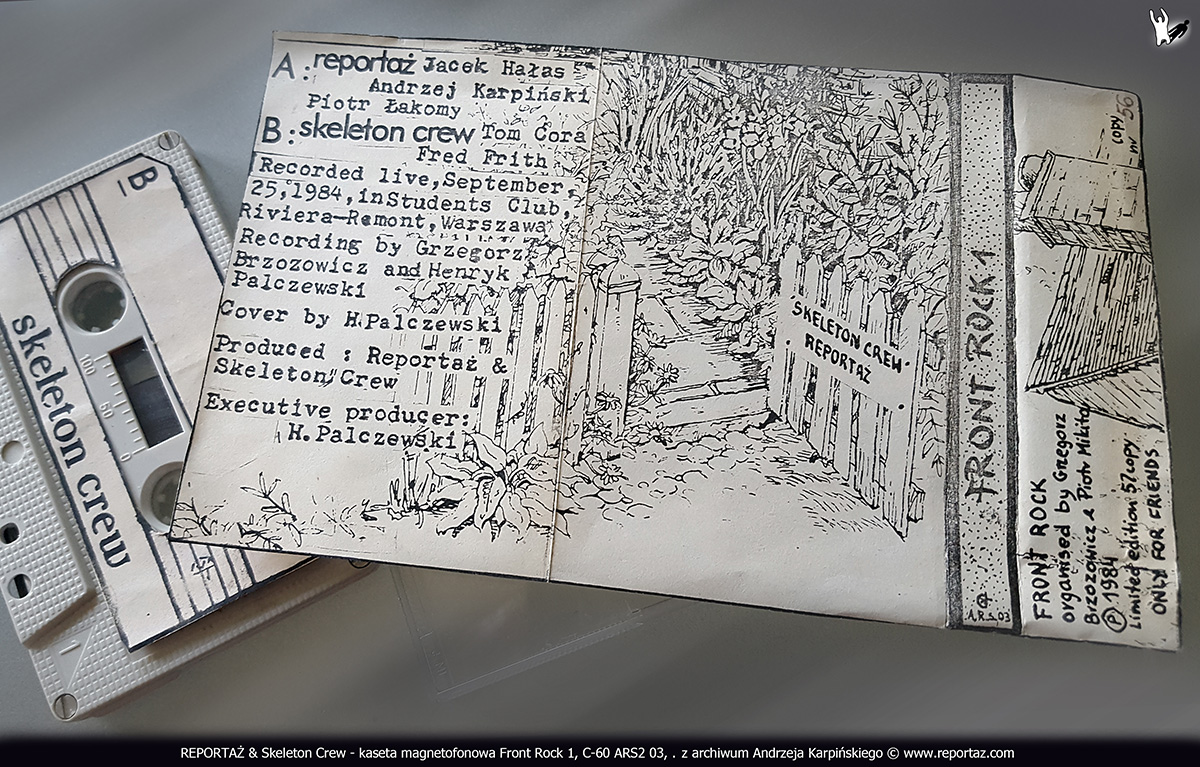 A: reportaż Jacek Hałas
Andrzej Karpiński
Piotr Łakomy
B: skeleton crew Tom Cora
Fred Frith
Recorded live, September,
25, 1984, in Students Club,
Riviera-Remont, Warszawa
Recording by Grzegorz
Brzozowicz and Henryk
Palczewski
Cover by H.Palczewski
Produced : Reportaż &
Skeleton Crew
Executive producer:
H. Palczewski
SKELETON CREW
REPORTAŻ
FRONT ROCK 1
A.R.S. 03
COPY
56
FRONT ROCK
organised by Grzegorz
Brzozowicz & Piotr Mikita
Ⓟ 1984
Limited edition 57 copy
ONLY FOR FRIENDS
B
100
50
0
skeleton crew
REPORTAŻ & Skeleton Crew - kaseta magnetofonowa Front Rock 1, C-60 ARS2 03, . z archiwum Andrzeja Karpińskiego © www.reportaz.com